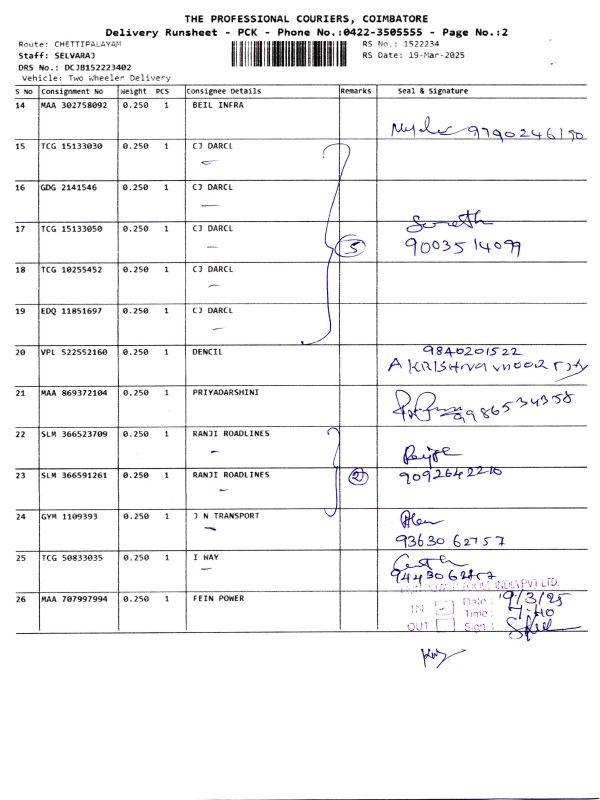 THE PROFESSIONAL COURIERS, COIMBATORE
Delivery Runsheet - PCK - Phone No.:0422-3505555 - Page No.:2
Route: CHETTIPALAYAM
RS No.: 1522234
Staff: SELVARAJ
RS Date: 19-Mar-2025
DRS No.: DCJB152223402
Vehicle: Two Wheeler Delivery
S No Consignment No Weight PCS Consignee Details Remarks Seal & Signature
14 MAA 302758092 0.250 1 BEIL INFRA
9790246190
15 TCG 15133030 0.250 1 CJ DARCL
16 GDG 2141546 0.250 1 CJ DARCL
17 TCG 15133050 0.250 1 CJ DARCL
5 9003514099
18 TCG 10255452 0.250 1 CJ DARCL
19 EDQ 11851697 0.250 1 CJ DARCL
20 VPL 522552160 0.250 1 DENCIL 9840201522
21 MAA 869372104 0.250 1 PRIYADARSHINI
9865534358
22 SLM 366523709 0.250 1 RANJI ROADLINES
23 SLM 366591261 0.250 1 RANJI ROADLINES 2 9092642210
24 GYM 1109393 0.250 1 J N TRANSPORT
9363062757
25 TCG 50833035 0.250 1 I WAY
INDIA PVT LTD.
26 MAA 707997994 0.250 1 FEIN POWER
IN Date: 19/3/25
Time:
OUT Sign: